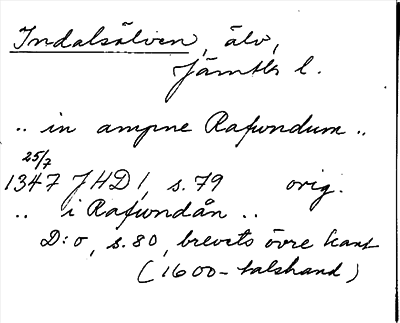 Indalsälven, älv,
Jämtls l.
.. in ampne Rafwndum ..
25/7
1347 JHD 1, s. 79 orig.
.. i Rafwndån ..
D:o, s. 80, brevets övre kant
(1600-talshand)